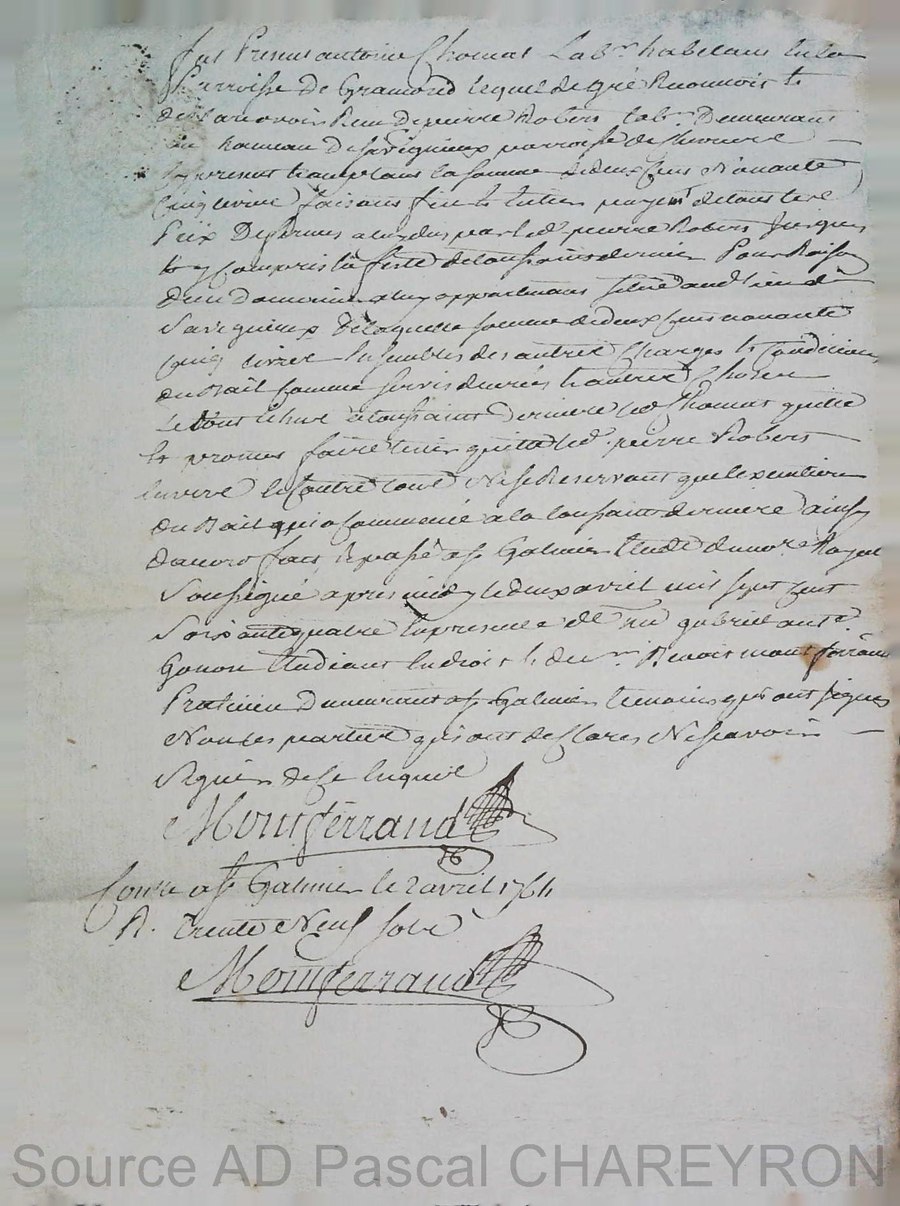 fut Present antoine Chomat Lab.r habitant en la
Parroisse de Gramond lequel de gré Reconnois et
Déclare avoir Receu de pierre Robert lab.r Demeurant
au hameau de Savigneux parroisse de
a present la somme de deux Cens Nonante
Cinq livres faisant fin et entier payem.t de tout le
Prix De fermes a luy dus par led. pierre Robert jusques
et y Compris la feste de toussaints dernier Pour Raison
d'un Domaine a luy appartenant situé aud. lieu de
Savigneux de laquelle somme de deux Cens nonante
Cinq livres Ensembles des autres Charges et Conditions
du Bail Comme servis denrées et autres Choses
Le tout échue a toussaint derniere led. Chomat quitte
et promet faire tenir quitte led. pierre Robert
Envers et Contre tous Ne se Reservant que l'execution
du Bail qui a Commencé a la toussaint derniere ainsy
d'accord fait et passé a S.t Galmier Etude du no.re Royal
Soussigné apres midy le deux avril mil sept cent
Soixante quatre En presence de gabriel ant.e
Gonon Etudiant En droit et de Benoit montferrand
Praticien demeurant a S.t Galmier temoins qui ont signés
Non les parties qui ont desclarés Ne sçavoir
Signer de Ce Enquis
Montferrand
Conlle a S.t Galmier le 2 avril 1764
R. trente Neuf sols
Montferrand
Source AD Pascal CHAREYRON